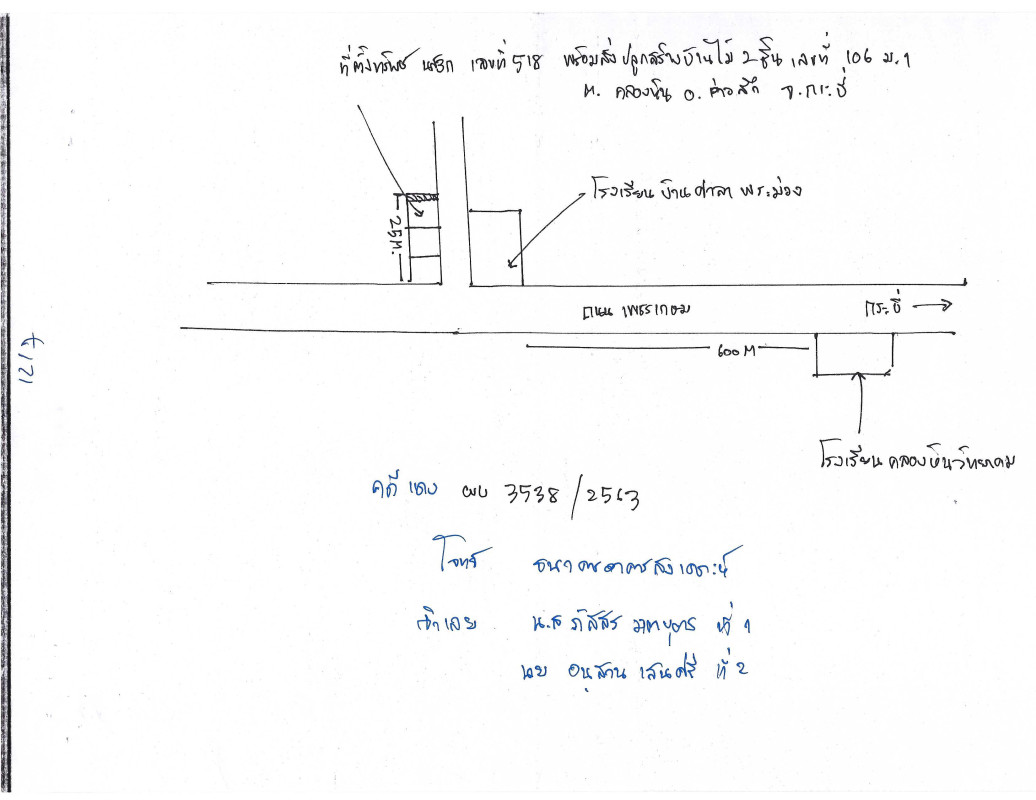 ที่ตั้งทรัพย์ นส3ก เลขที่ 518 พร้อมสิ่งปลูกสร้างบ้านไม้ 2 ชั้น เลขที่ 106 ม.1
ต. คลองหิน อ. อ่าวลึก จ. กระบี่
โรงเรียนบ้านศาลาพระม่วง
25 ม.
ถนน เพชรเกษม
กระบี่
600 M
โรงเรียนคลองหินวิทยาคม
คดีแดง ผบ 3538/2563
โจทก์ ธนาคารอาคารสงเคราะห์
จำเลย น.ส ภัสสร ที่ 1
นาย อนุสาน เสนศรี ที่ 2